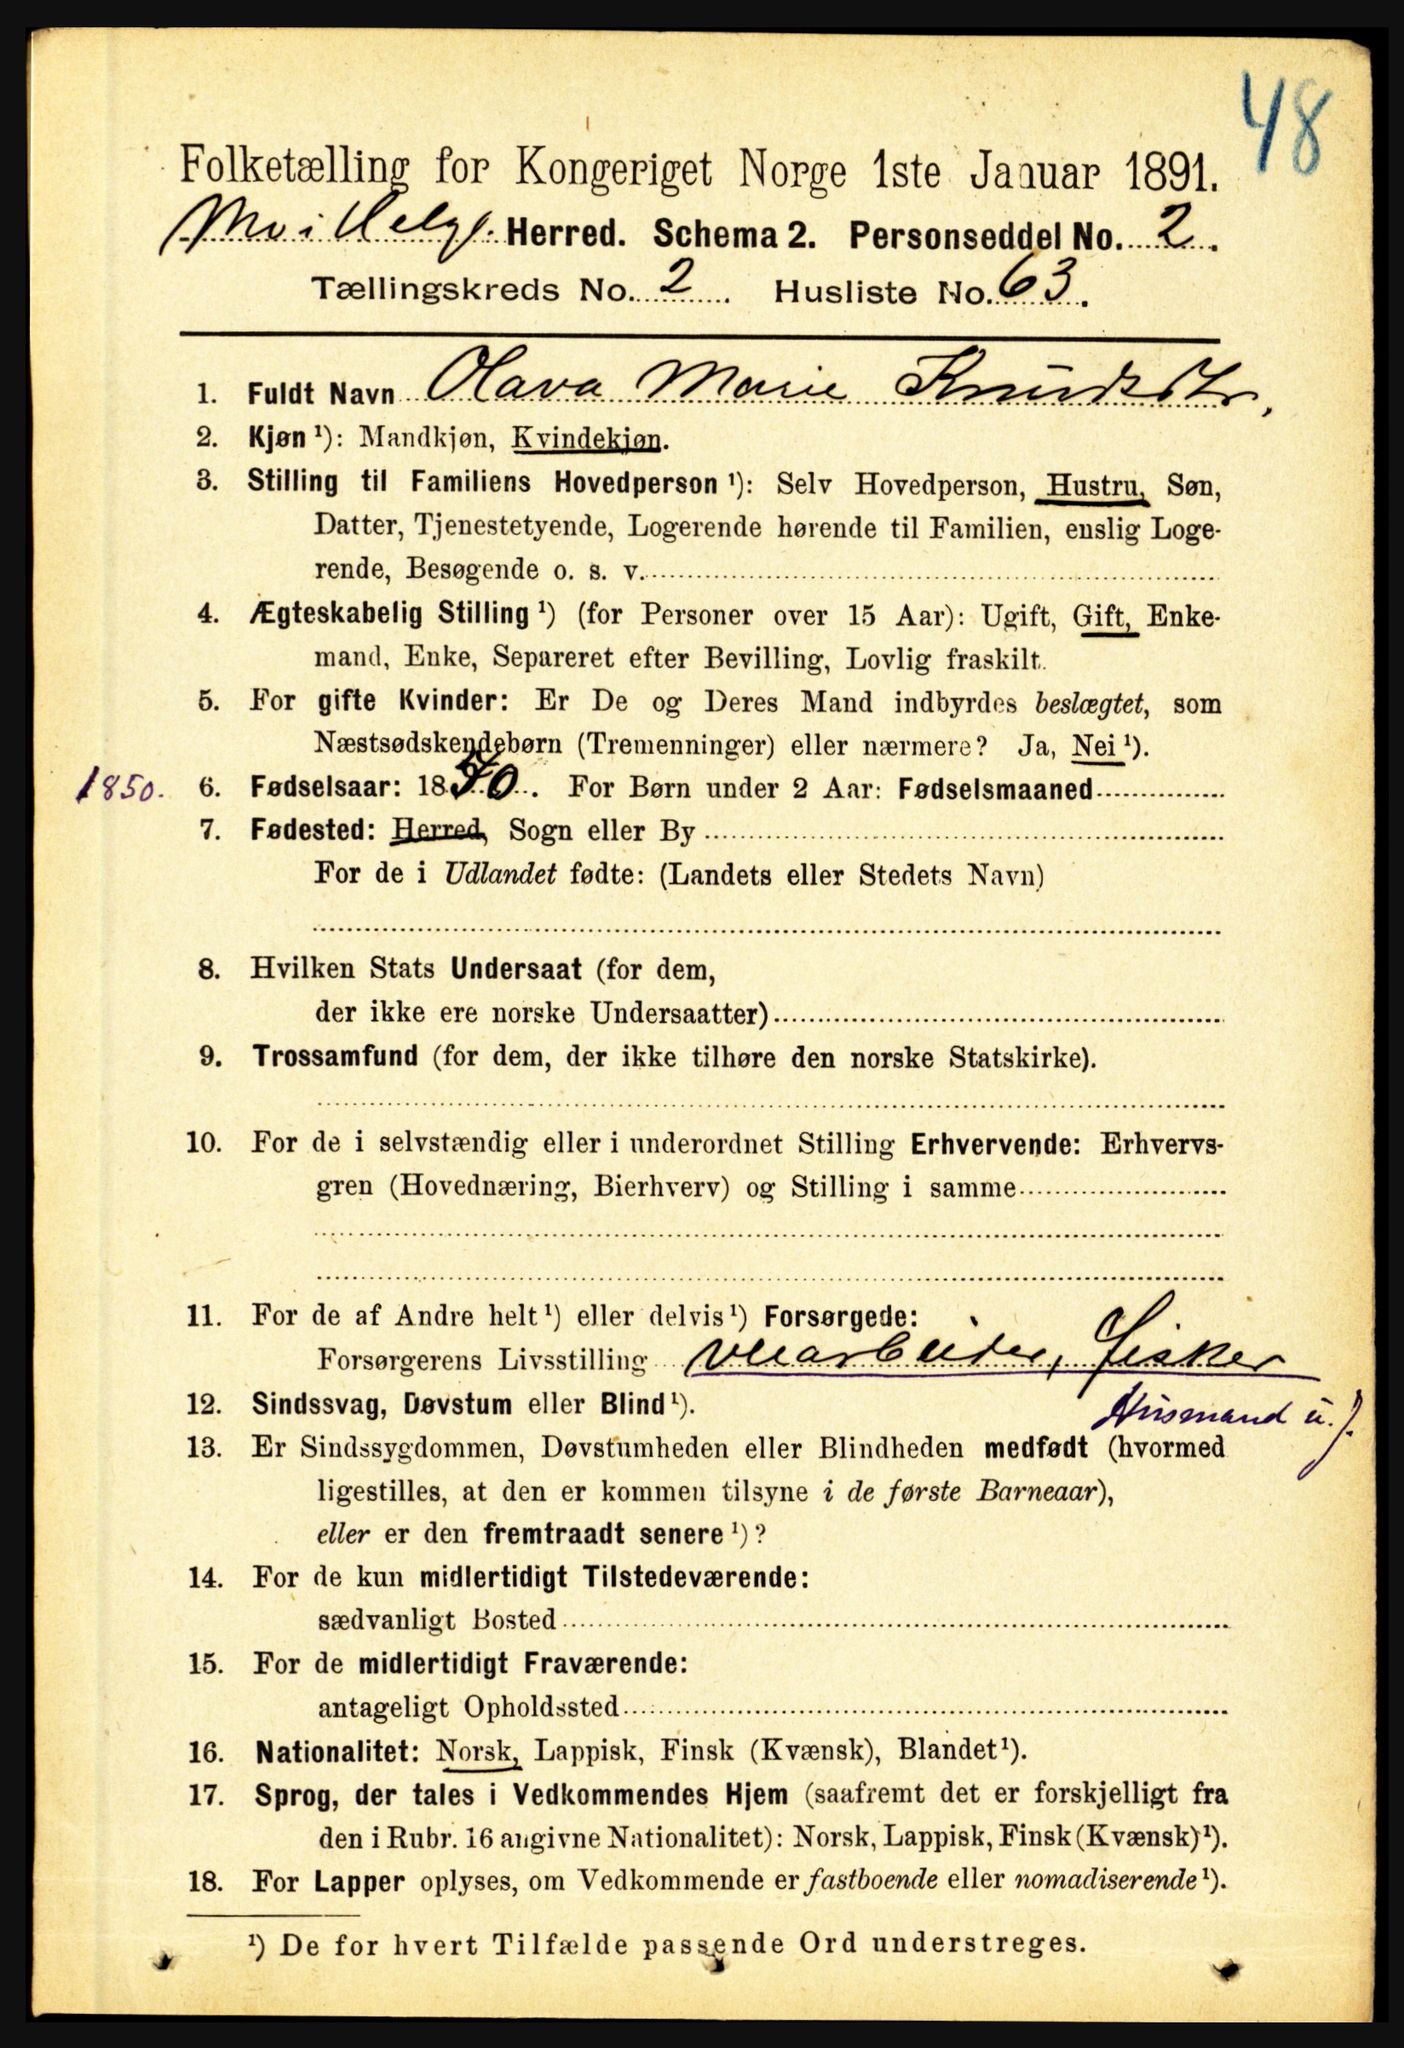 48
Folketælling for Kongeriget Norge 1ste Januar 1891.
Mo i Helgl. Herred. Schema 2. Personseddel No. 2.
Tællingskreds No. 2. Husliste No. 63.
1. Fuldt Navn Olava Marie Knudsdtr.
2. Kjøn ¹): Mandkjøn, Kvindekjøn.
3. Stilling til Familiens Hovedperson ¹): Selv Hovedperson, Hustru, Søn,
Datter, Tjenestetyende, Logerende hørende til Familien, enslig Loge-
rende, Besøgende o. s. v.
4. Ægteskabelig Stilling ¹) (for Personer over 15 Aar): Ugift, Gift, Enke-
mand, Enke, Separeret efter Bevilling, Lovlig fraskilt.
5. For gifte Kvinder: Er De og Deres Mand indbyrdes beslægtet, som
Næstsødskendebørn (Tremenninger) eller nærmere? Ja, Nei ¹).
1850. 6. Fødselsaar: 1850. For Børn under 2 Aar: Fødselsmaaned
7. Fødested: Herred, Sogn eller By
For de i Udlandet fødte: (Landets eller Stedets Navn)
8. Hvilken Stats Undersaat (for dem,
der ikke ere norske Undersaatter)
9. Trossamfund (for dem, der ikke tilhøre den norske Statskirke).
10. For de i selvstændig eller i underordnet Stilling Erhvervende: Erhvervs-
gren (Hovednæring, Bierhverv) og Stilling i samme
11. For de af Andre helt ¹) eller delvis ¹) Forsørgede:
Forsørgerens Livsstilling Veiarbeider, Fisker
Husmand u. J.
12. Sindssvag, Døvstum eller Blind ¹).
13. Er Sindssygdommen, Døvstumheden eller Blindheden medfødt (hvormed
ligestilles, at den er kommen tilsyne i de første Barneaar),
eller er den fremtraadt senere ¹)?
14. For de kun midlertidigt Tilstedeværende:
sædvanligt Bosted
15. For de midlertidigt Fraværende:
antageligt Opholdssted
16. Nationalitet: Norsk, Lappisk, Finsk (Kvænsk), Blandet ¹).
17. Sprog, der tales i Vedkommendes Hjem (saafremt det er forskjelligt fra
den i Rubr. 16 angivne Nationalitet): Norsk, Lappisk, Finsk (Kvænsk) ¹).
18. For Lapper oplyses, om Vedkommende er fastboende eller nomadiserende ¹).
¹) De for hvert Tilfælde passende Ord understreges.